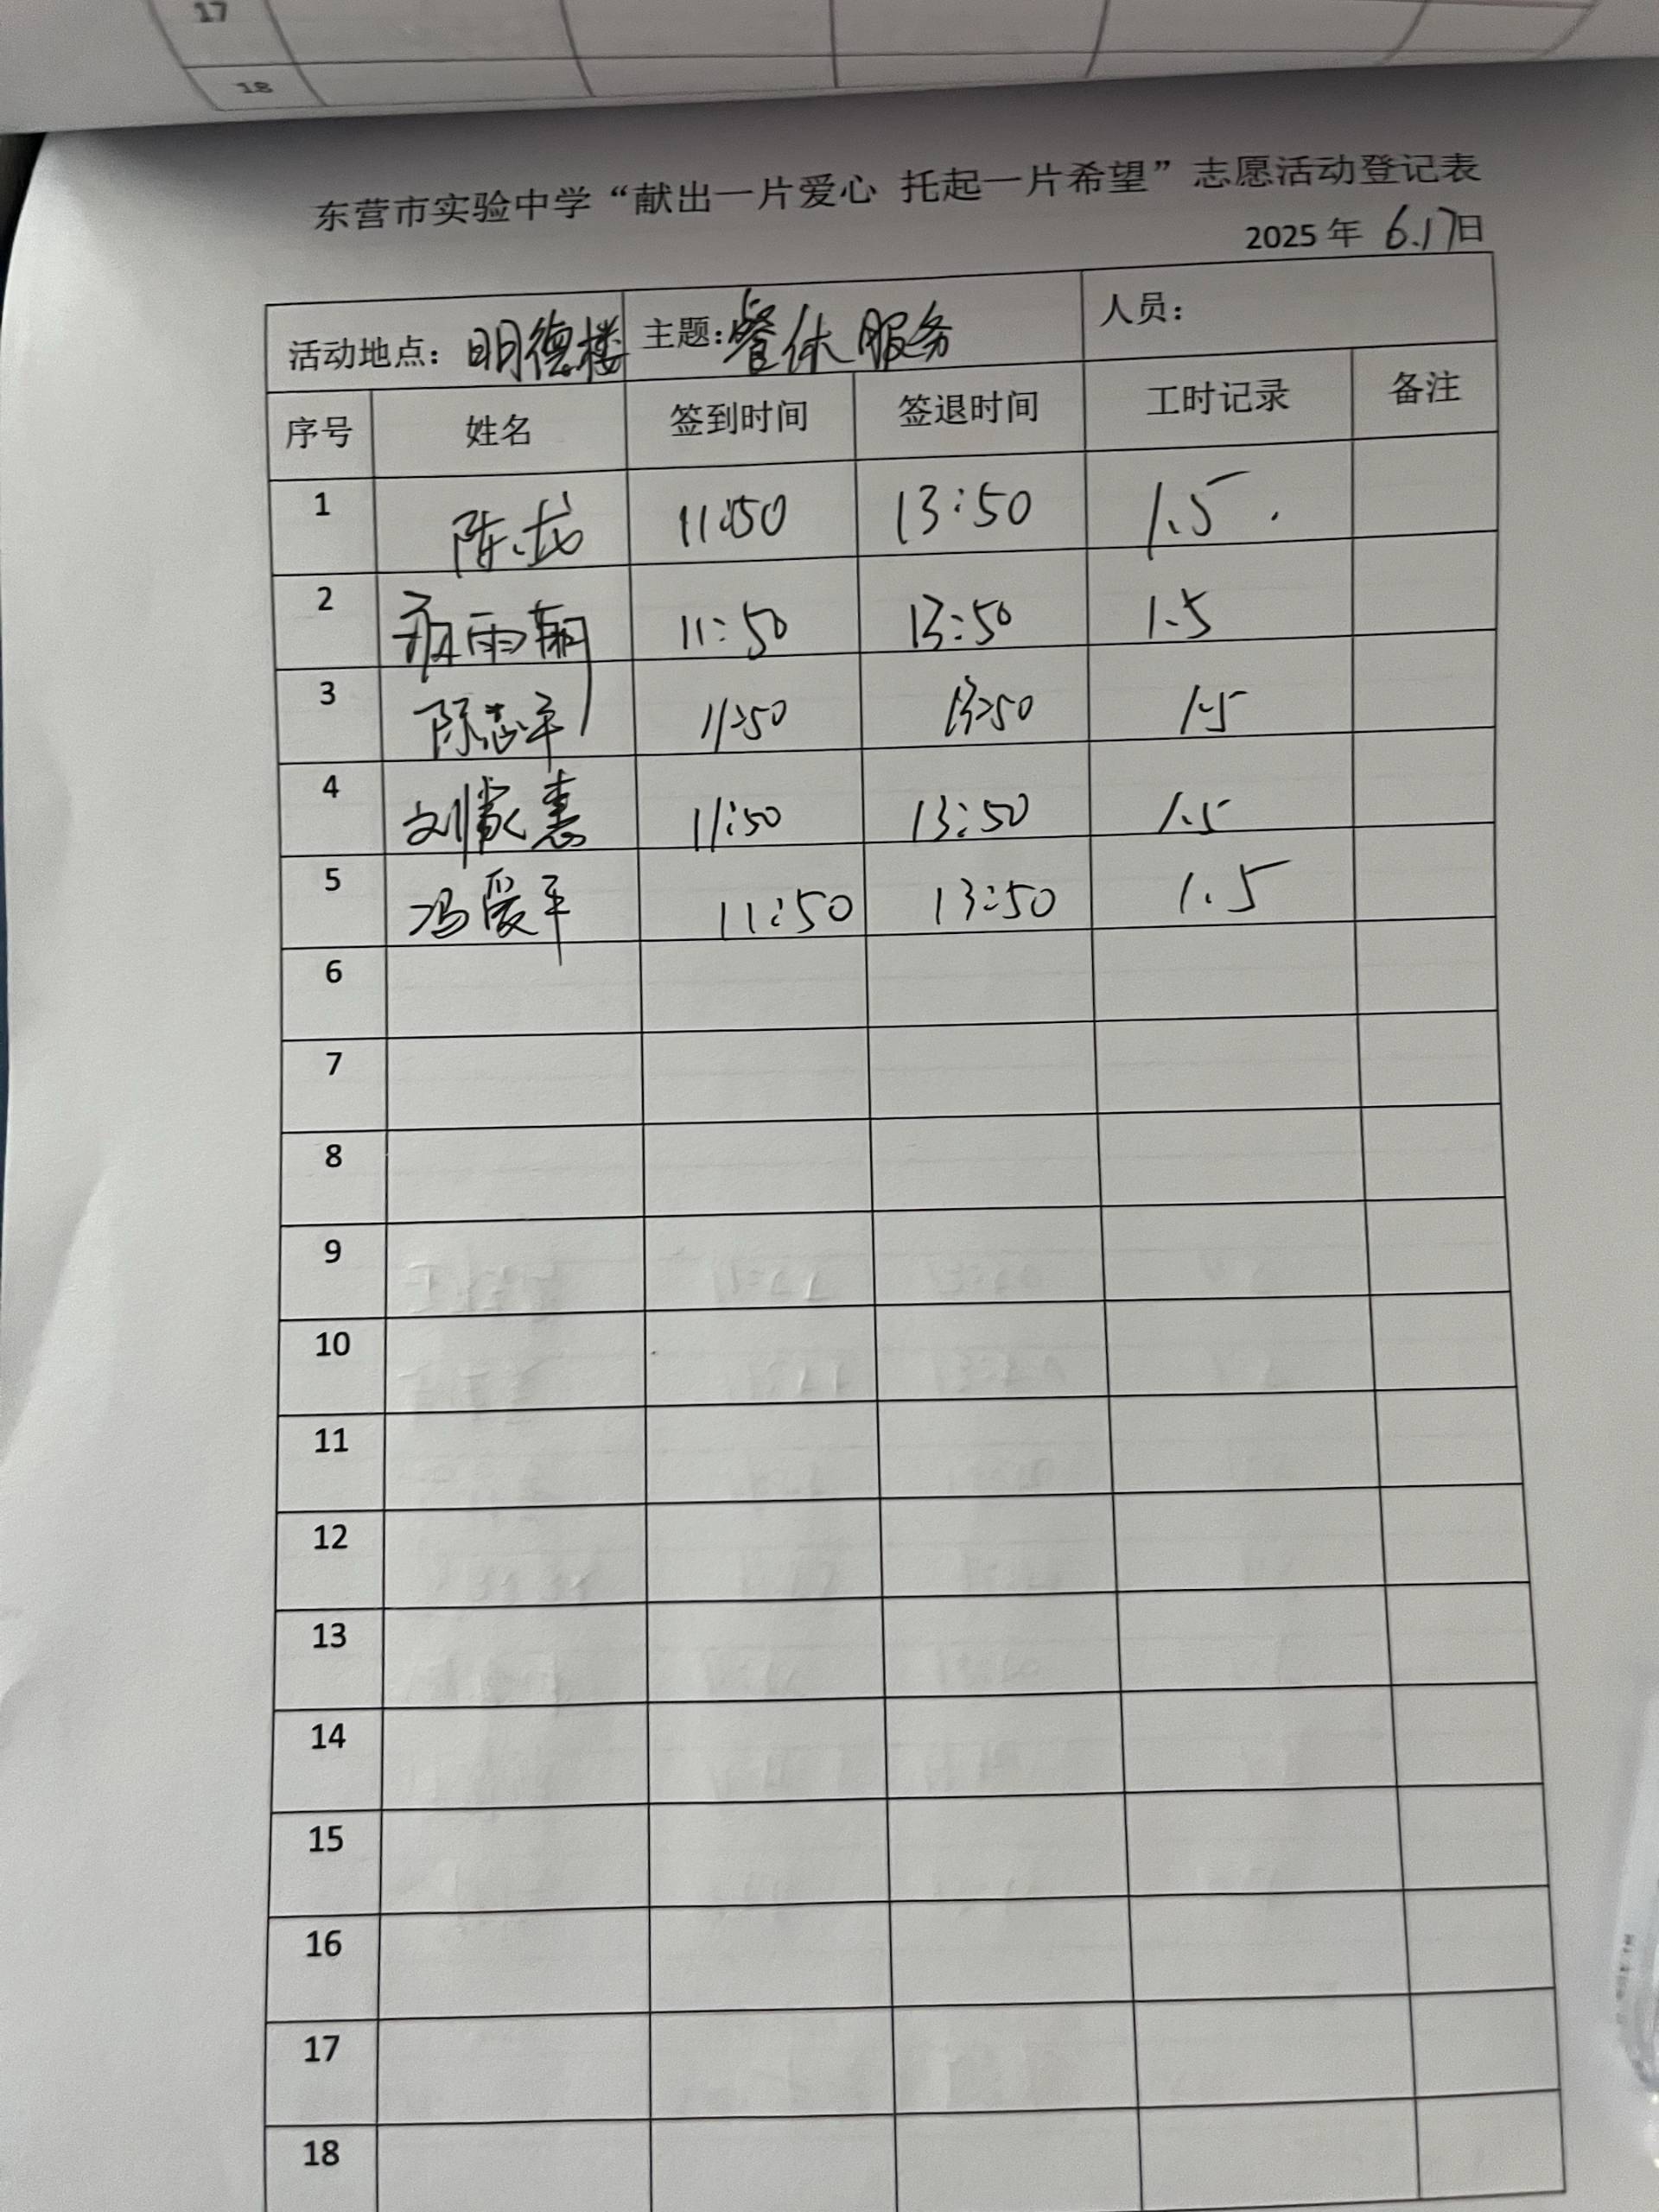 17
18
东营市实验中学“献出一片爱心 托起一片希望”志愿活动登记表
2025 年 6.17日
活动地点：明德楼 主题：餐休服务 人员：
序号 姓名 签到时间 签退时间 工时记录 备注
1 陈龙 11:50 13:50 1.5
2 11:50 13:50 1.5
3 陈志军 11:50 13:50 1.5
4 刘家惠 11:50 13:50 1.5
5 冯爱平 11:50 13:50 1.5
6
7
8
9
10
11
12
13
14
15
16
17
18